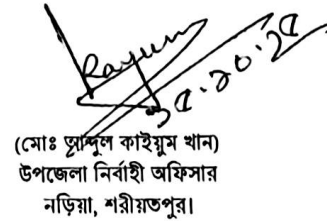 Rayum
(মোঃ আব্দুল কাইয়ুম খান)
উপজেলা নির্বাহী অফিসার
নড়িয়া, শরীয়তপুর।